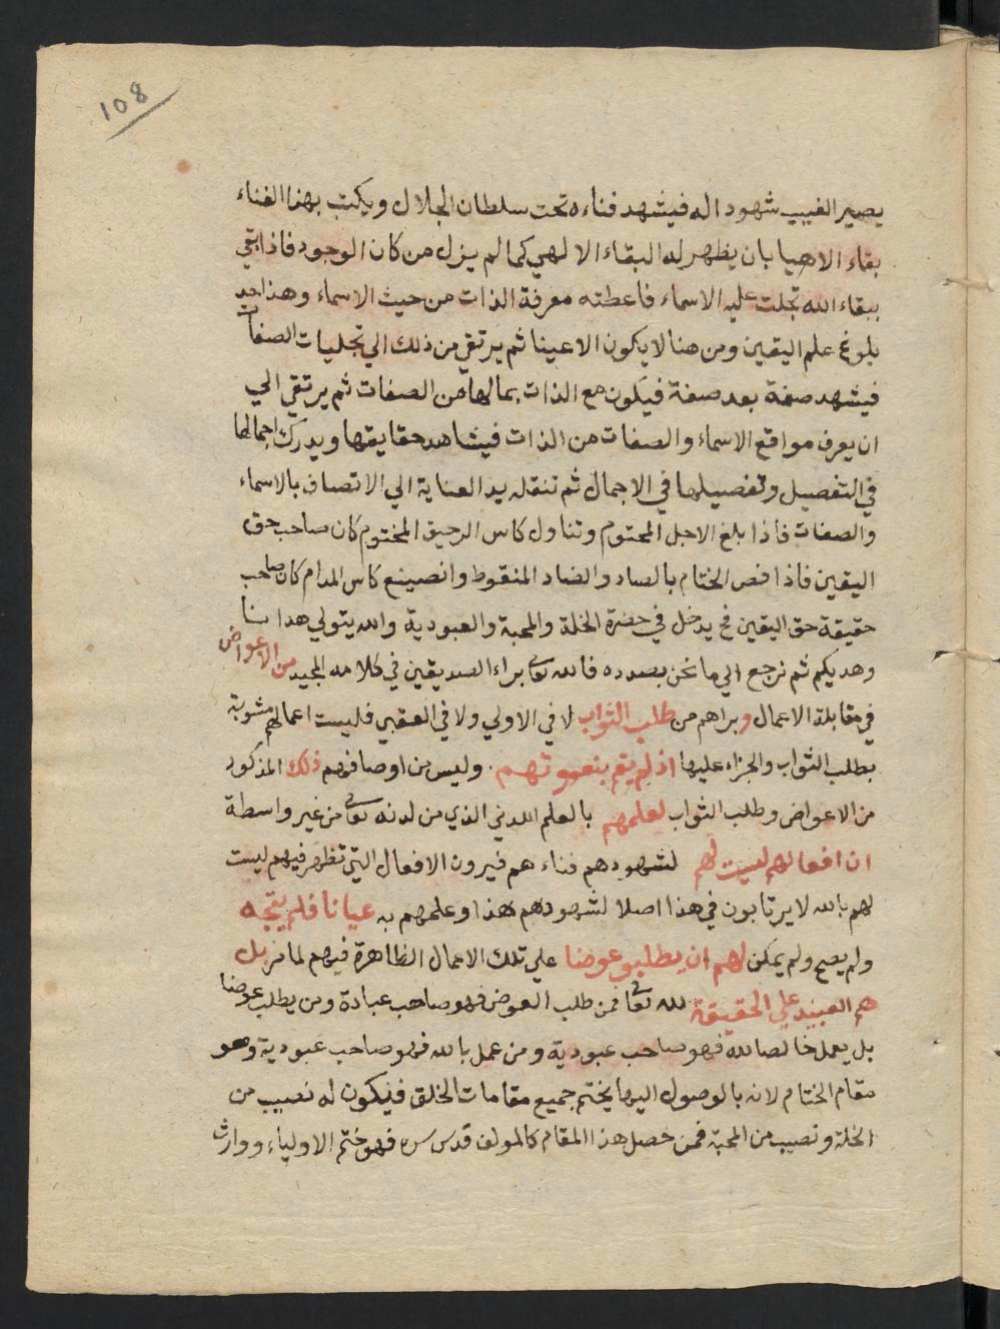 108
يصير الغيب شهودا له فيشهد فناءه تحت سلطان الجلال ويكتب بهذا الفناء
بقاء الاهيا بان يظهر له البقاء الالهي كما لم يزل من كان الوجود فاذا بقي
ببقاء الله تجلت عليه الاسماء فاعطته معرفة الذات من حيث الاسماء وهذا حد
بلوغ علم اليقين ومن هنا لا يكون الا عينا ثم يرتقي من ذلك الي تجليات الصفات
فيشهد صفة بعد صفة فيكون مع الذات بما لها من الصفات ثم يرتقي الي
ان يعرف مواقع الاسماء والصفات من الذات فيشاهد حقايقها ويدرك اجمالها
في التفصيل وتفصيلها في الاجمال ثم تنقله يد العناية الي الاتصاف بالاسماء
والصفات فاذا بلغ الاجل المحتوم وتناول كاس الرحيق المختوم كان صاحب حق
اليقين فاذا فض الختام بالصاد والضاد المنقوط وانصبغ كاس المدام كان صاحب
حقيقة حق اليقين فح يدخل في حضرة الخلة والمحبة والعبودية والله يتولي هدانا
وهديكم ثم نرجع الي ما نحن بصدده فالله تعا براء الصديقين في كلامه المجيد من الاعواض
في مقابلة الاعمال وبراهم من طلب الثواب لا في الاولي ولا في العقبي فليست اعمالهم مشوبة
بطلب الثواب والجزاء عليها اذ لم يقم بنعوتهم وليس من اوصافهم ذلك المذكور
من الاعواض وطلب الثواب لعلمهم بالعلم اللدني الذي من لدنه تعا من غير واسطة
ان افعالهم ليست لهم لشهودهم فناء هم فيرون الافعال التي تظهر فيهم ليست
لهم بالله لا يرتابون في هذا اصلا لشهودهم هذا وعلمهم به عيانا فلم يتجه
ولم يصح ولم يمكن لهم ان يطلبو عوضا علي تلك الاعمال الظاهرة فيهم لما مر بل
هم العبيد علي الحقيقة لله تعا فمن طلب العوض فهو صاحب عبادة ومن يطلب عوضا
بل يعمل خالصا لله فهو صاحب عبودية ومن عمل بالله فهو صاحب عبودية وهو
مقام الختام لانه بالوصول اليها يختم جميع مقامات الخلق فيكون له نصيب من
الخلة ونصيب من المحبة فمن حصل هذا المقام كالمولف قدس سره فهو ختم الاولياء ووارث